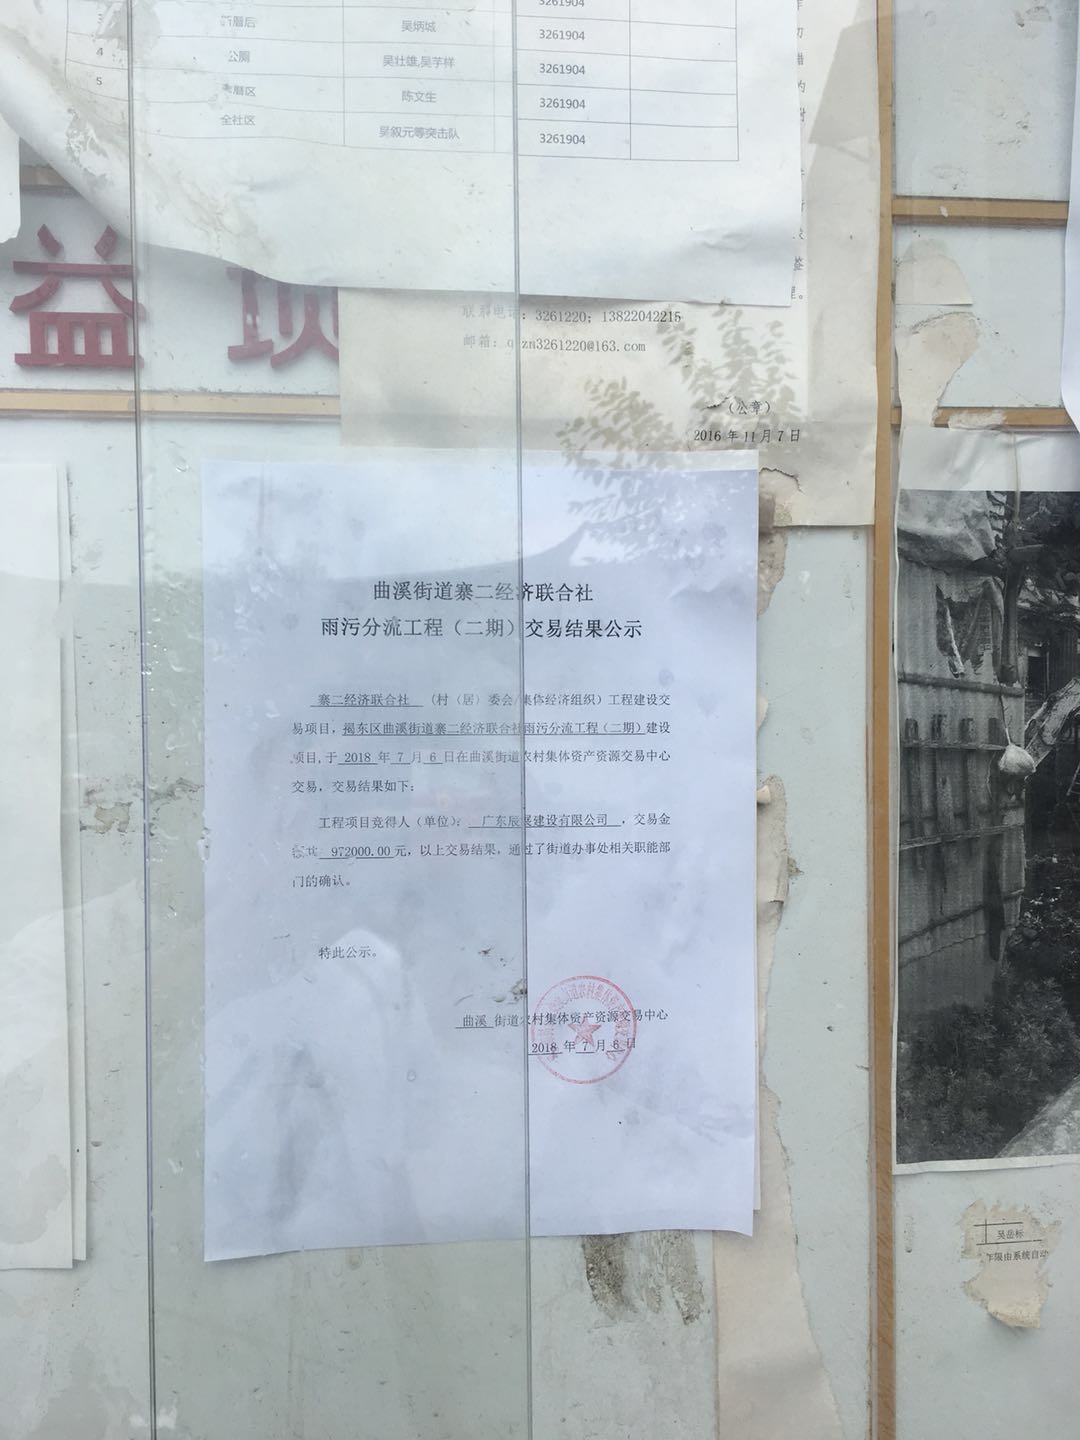 3261904
吴炳城
3261904
4
公厕
吴壮雄,吴芋样
3261904
5
陈文生
3261904
全社区
吴叙元等突击队
3261904
益 项
3261220; 13822042215
邮箱:
zn3261220@163.com
(公章)
2016 年 11 月 7 日
曲溪街道寨二经济联合社
雨污分流工程(二期)交易结果公示
寨二经济联合社 (村(居)委会/集体经济组织)工程建设交
易项目,揭东区曲溪街道寨二经济联合社雨污分流工程(二期)建设
项目,于 2018 年 7 月 6 日在曲溪街道农村集体资产资源交易中心
交易,交易结果如下:
工程项目竞得人(单位): 广东辰展建设有限公司 ,交易金
972000.00 元,以上交易结果,通过了街道办事处相关职能部
门的确认。
特此公示。
曲溪 街道农村集体资产资源交易中心
2018 年 7 月 6 日
吴岳标
年限由系统自动